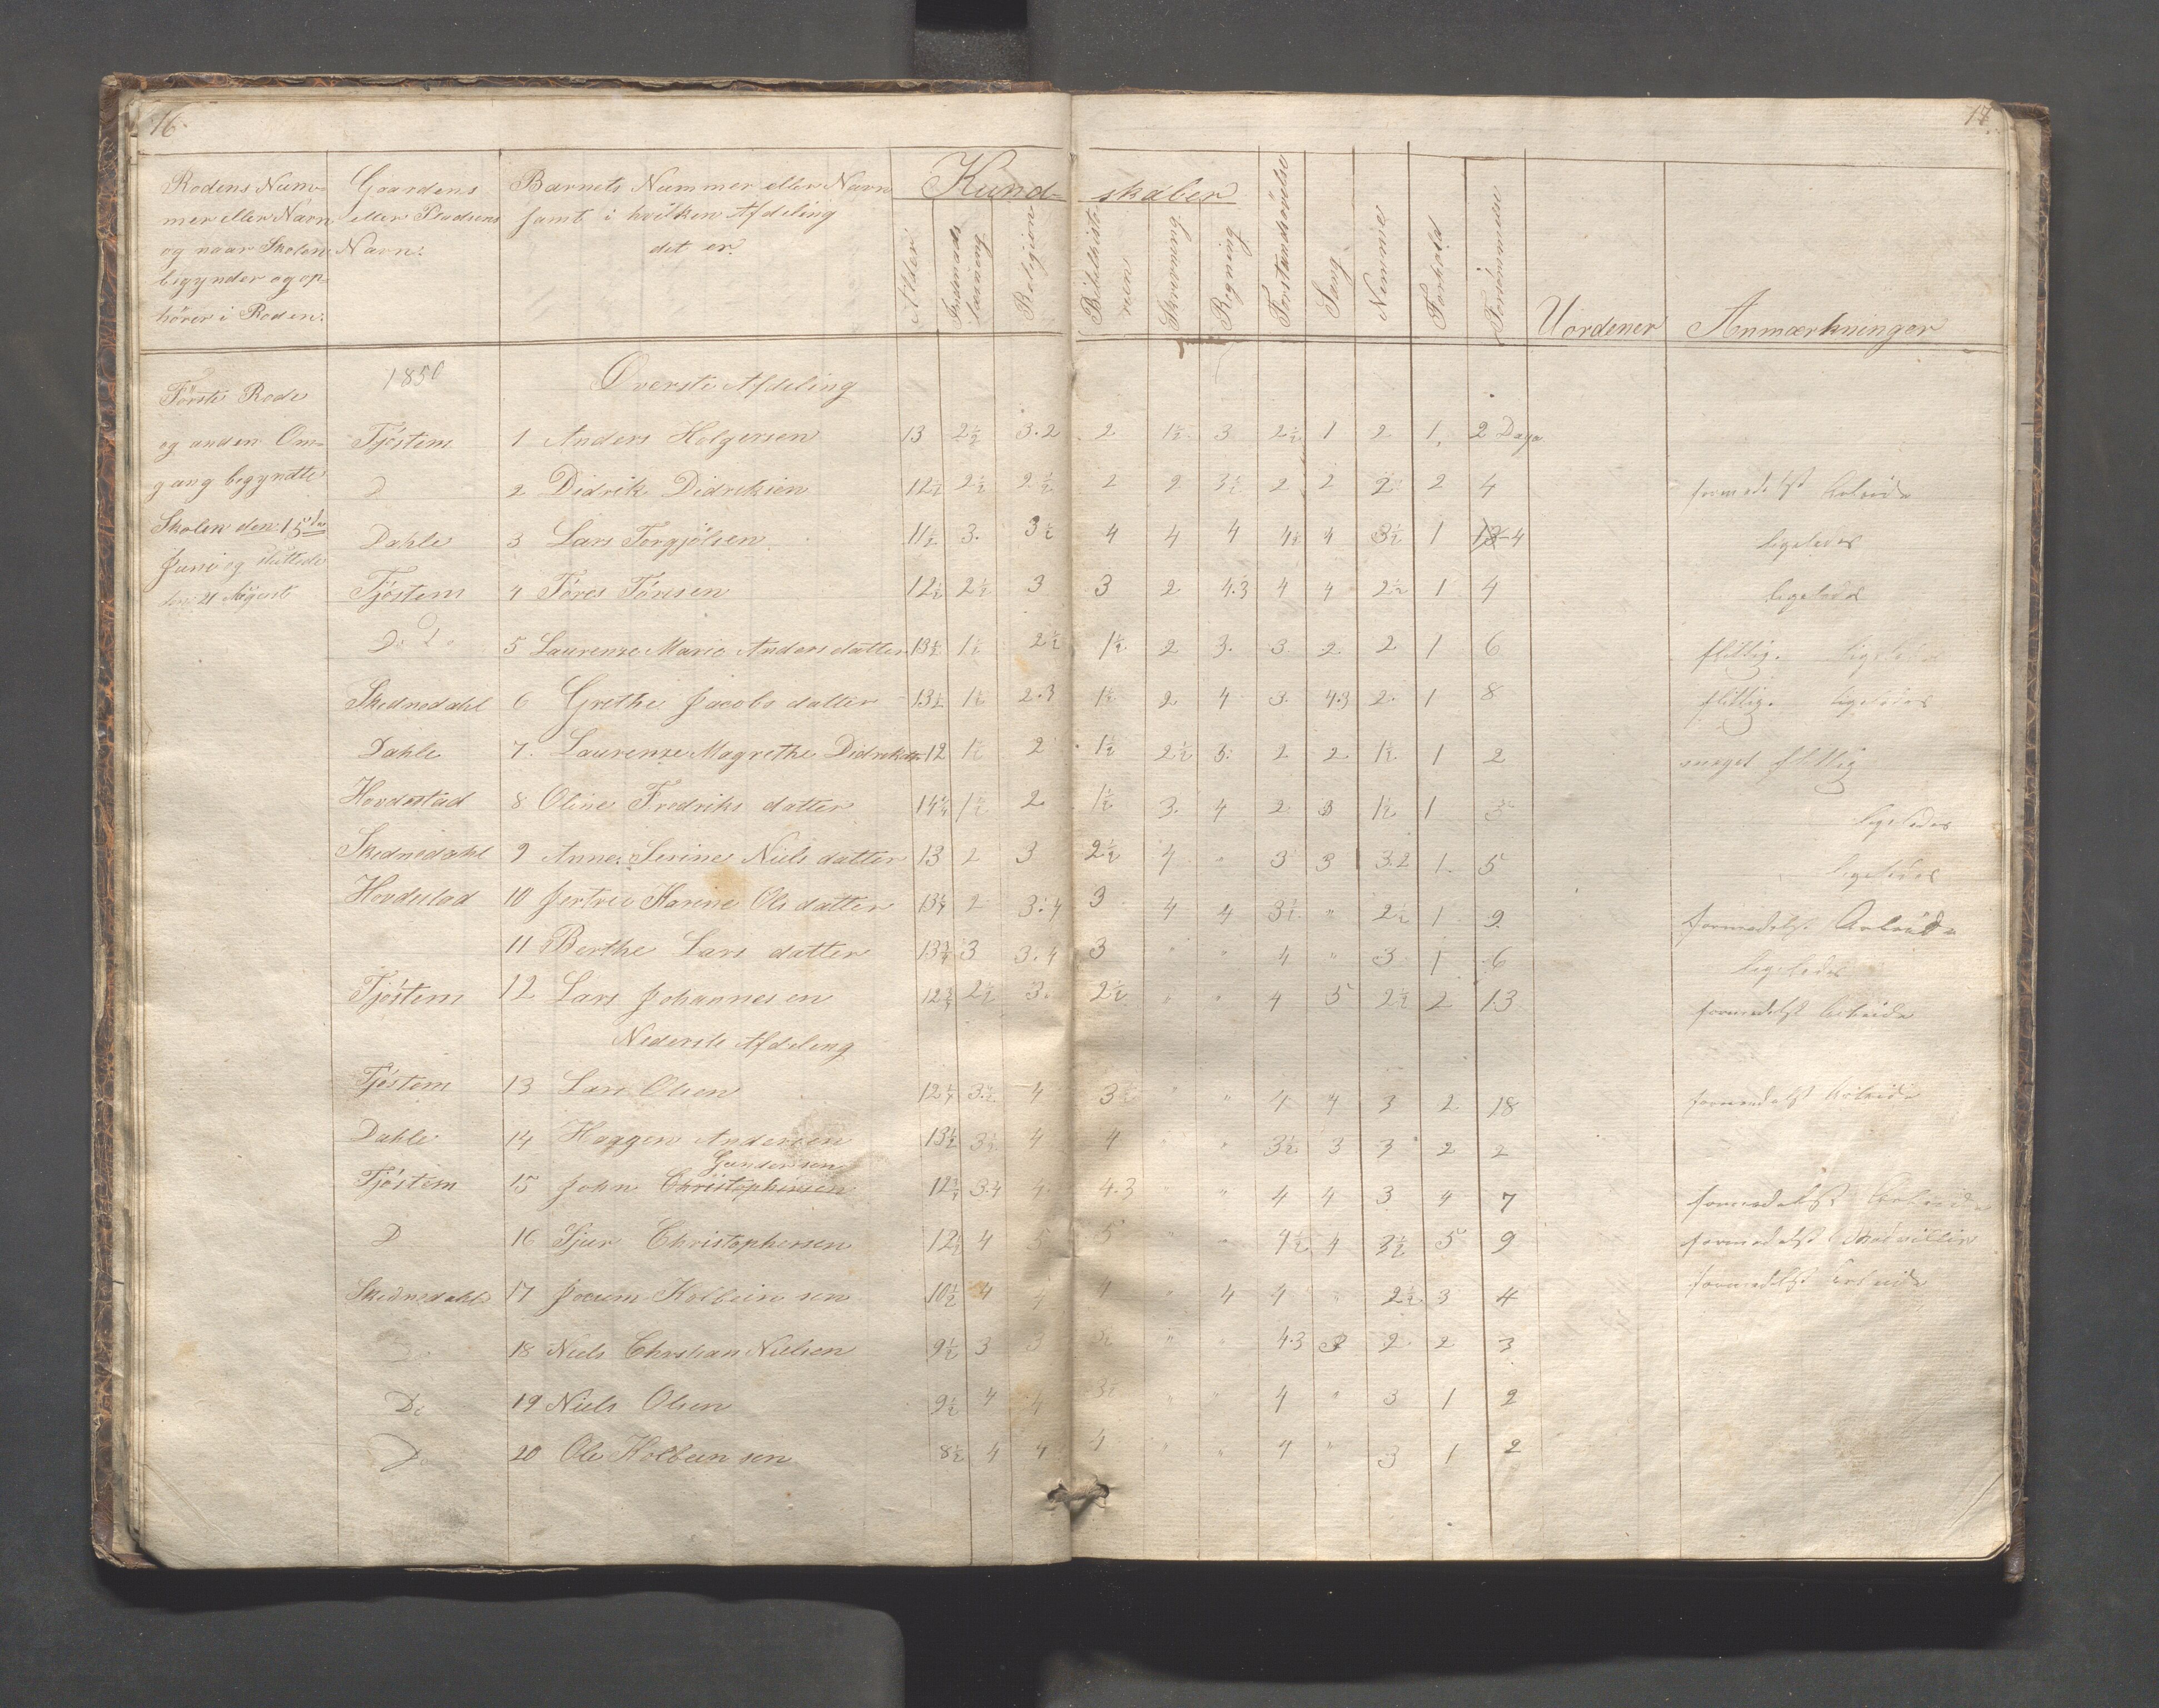 16.
17.
Rodens Num-
mer eller Navn
og naar Skolen
begynder og op-
hører i Roden.
Gaardens
eller Pladsens
Navn.
Barnets Nummer eller Navn
samt i hvilken Afdeling
det er.
Kund- skaber
Alder
Indenads læsning
Religion
Bibelhisto- rien
Skrivning
Regning
Forstandsøvelse
Sang
Nemme
Forhold
Forsømmelse
Uordener
Anmærkninger
Første Rode
og anden Om-
gang begyndte
Skolen den 15de
Juni og sluttede
den 21 August
1850
Øverste Afdeling
Tjøstem 1 Anders Holgersen 13 2½ 3.2 2 1½ 3 2½ 1 2 1, 2 Dage
D 2 Didrik Didriksen 12½ 2½ 2½ 2 2 3½ 2 2 2 2 4 formedelst Arbeide
Dahle 3 Lars Torgjölsen 11½ 3. 3½ 4 4 4 4½ 4 3½ 1 4 ligeledes
Tjöstem 4 Töres Törisen 12½ 2½ 3 3 2 4.3 4 4 2½ 1 4 ligeledes
D. 5 Laurense Marie Anders datter 13½ 1½ 2½ 1½ 2 3. 3. 2 2 1 6 flittig. ligeledes
Skednedahl 6 Grethe Jacobs datter 13½ 1½ 2.3 1½ 2 4 3. 4.3 2. 1 8 flittig. ligeledes
Dahle 7. Laurense Magrethe Didriksdtr 12 1½ 2 1½ 2½ 3. 2 2 1½ 1 2 meget flittig
Hovdestad 8 Oline Fredriks datter 14¼ 1½ 2 1½ 3. 4 2 3 1½ 1 3 ligeledes
Skednedahl 9 Anne Serine Niels datter 13 2 3 2½ 4 " 3 3 3.2 1. 5 ligeledes
Hovdestad 10 Jertrie Karine Ols datter 13¼ 2 3.4 3 4 4 3½ " 2½ 1 9 formedelst Arbeide
11 Berthe Lars datter 13¾ 3 3.4 3 " " 4 " 3 1 6 ligeledes
Tjöstem 12 Lars Johannesen 12¾ 2½ 3. 2½ " " 4 5 2½ 2 13 formedelst Arbeide
Nederste Afdeling
Tjöstem 13 Lars Olsen 12¼ 3½ 4 3½ " " 4 4 3 2 18 formedelst Arbeide
Dahle 14 Haggen Andersen 13½ 3½ 4 4 " " 3½ 3 3 2 2
Gundersen
Tjöstem 15 John Christophersen 12¾ 3.4 4 4.3 " " 4 4 3 4 7 formedelst Arbeide
D 16 Sjur Christophersen 12½ 4 5 5 " " 4½ 4 3½ 5 9 formedelst
Skednedahl 17 Jocum Kolbein sen 10½ 4 4 4 " 4 4 " 2½ 3 4 formedelst Arbeide
Do 18 Niels Christian Nielsen 9½ 3 3 3½ " " 4.3 3 2 2 3
Do 19 Niels Olsen 9½ 4 4 3½ " " 4 " 3 1 2
Do 20 Ole Kolbein sen 8½ 4 4 4 " " 4 " 3 1 2